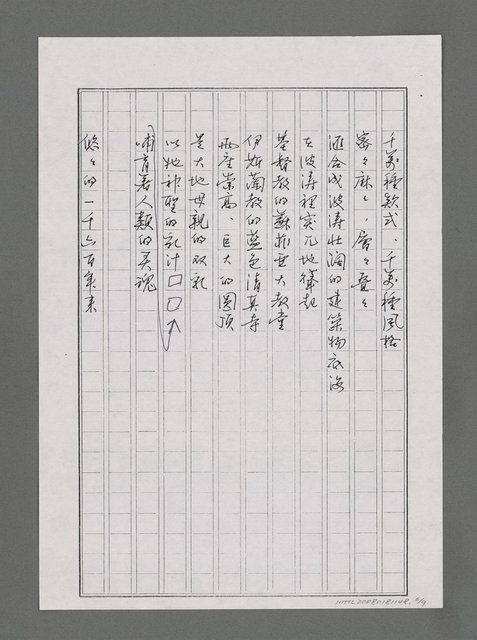 千萬種款式、千萬種風格
密々麻々，層々疊々
滙合成波濤壯濶的建築物底海
在波濤裡突兀地聳起
基督教的蘇菲亞大教堂
伊斯蘭教的藍色清真寺
兩座崇高、巨大的圓頂
是大地母親的双乳
以她神聖的乳汁□□
哺育着人類的灵魂
悠々的一千六百年來
NMTL20080181148. 5/9